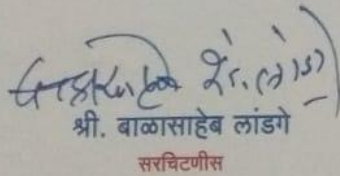 श्री. बाळासाहेब लांडगे
सरचिटणीस